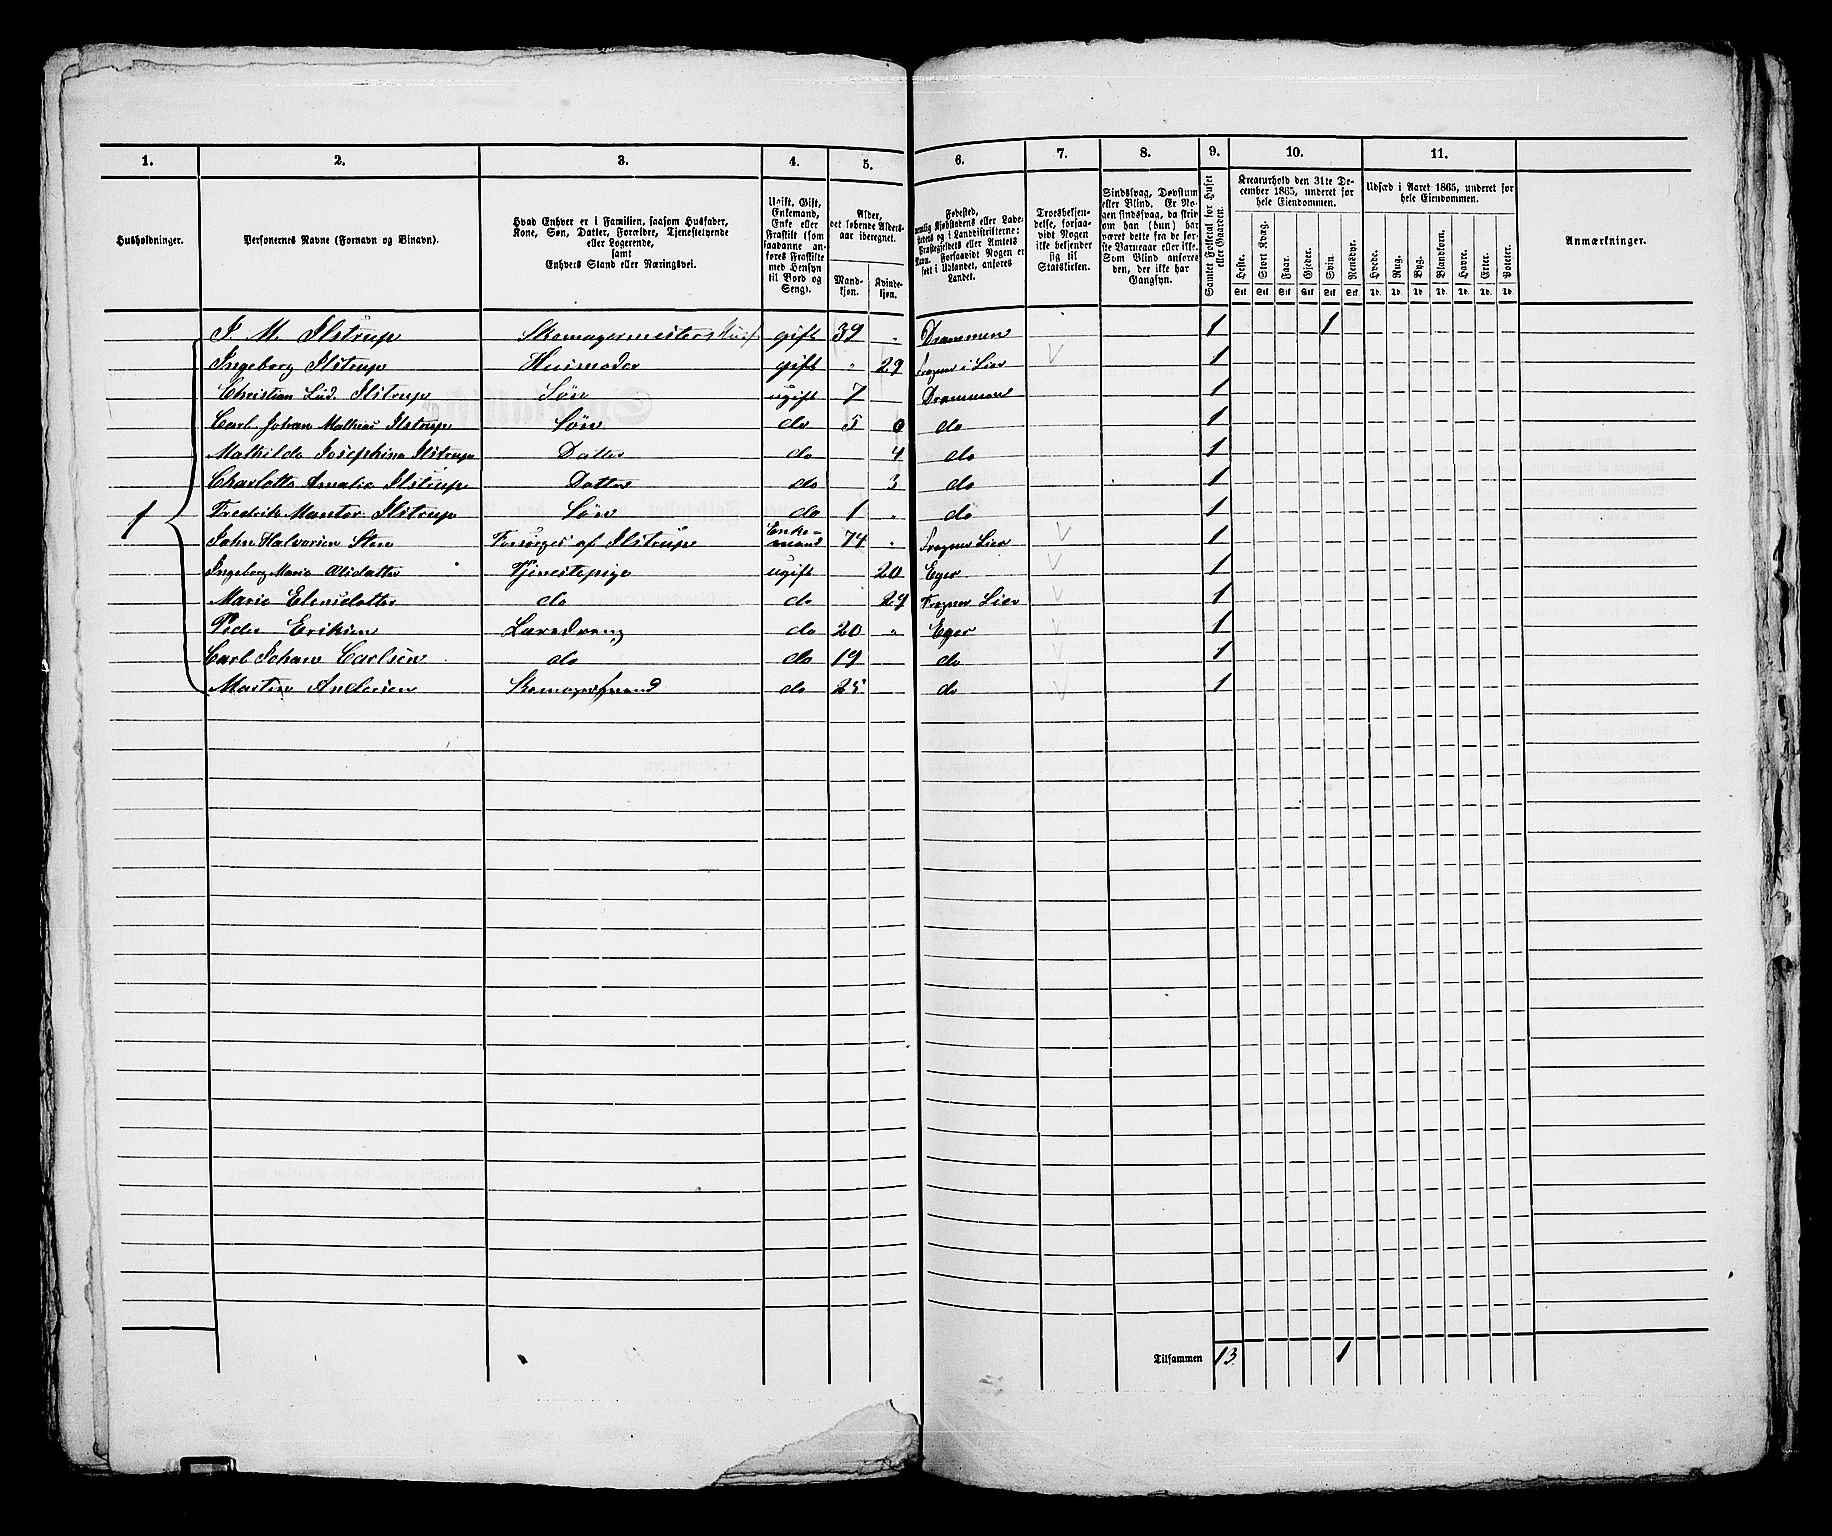 1. 2. 3. 4. 5. 6. 7. 8. 9. 10. 11.
Husholdninger.
Personernes Navne (Fornavn og Binavn).
Hvad Enhver er i Familien, saasom Husfader,
Kone, Søn, Datter, Forældre, Tjenestetyende
eller Logerende,
samt
Enhvers Stand eller Næringsvei.
Ugift, Gift,
Enkemand,
Enke eller
Fraskilt (som
saadanne an-
føres Fraskilte
med Hensyn
til Bord og
Seng).
Alder,
det løbende Alders-
aar iberegnet.
Mand-
kjøn.
Kvinde-
kjøn.
Fødested,
nemlig Kjøbstadens eller Lade-
stedets og i Landdistrikterne:
Præstegjeldets eller Amtets
Navn. Forsaavidt Nogen er
født i Udlandet, anføres
Landet.
Troesbekjen-
delse, forsaa-
vidt Nogen
ikke bekjender
sig til
Statskirken.
Sindssvag, Døvstum
eller Blind. Er No-
gen sindssvag, da skriv
om han (hun) har
været dette fra de før-
ste Barneaar eller ikke.
Som Blind anføres
den, der ikke har
Gangsyn.
Samlet Folketal for Huset
eller Gaarden.
Kreaturhold den 31te De-
cember 1865, underet for
hele Eiendommen.
Heste. Stort Kvæg. Faar. Gjeder. Svin. Rensdyr.
Stk Stk Stk Stk Stk Stk
Udsæd i Aaret 1865, underet for
hele Eiendommen.
Hvede. Rug. Byg. Blandkorn. Havre. Erter. Poteter.
Td. Td. Td. Td. Td. Td. Td.
Anmærkninger.
J. M. Ilstrup Skomagermester Husf gift 39 " Drammen 1 1
Ingeborg Ilstrup Husmoder gift " 29 Frogner i Lier 1
Christian Lud. Ilstrup Søn ugift 7 Drammen 1
Carl Johan Mathias Ilstrup Søn do 5 0 do 1
Mathilde Josephine Ilstrup Datter do 4 do 1
Charlotte Amalie Ilstrup Datter do 3 do 1
1 Fredrik Mantor Ilstrup Søn do 1 " do 1
John Halvorsen Sten Forsørges af Ilstrup Enke-
mand 74 " Frogner Lier 1
Ingeborg Marie Olsdatter Tjenestepige ugift 20 Eger 1
Marie Elensdatter do do 29 Frogner Lier 1
Peder Eriksen Læredreng do 20 " Eger 1
Carl Johan Carlsen do do 19 do 1
Martin Andersen Skomagersvend do 25 do 1
Tilsammen 13 1